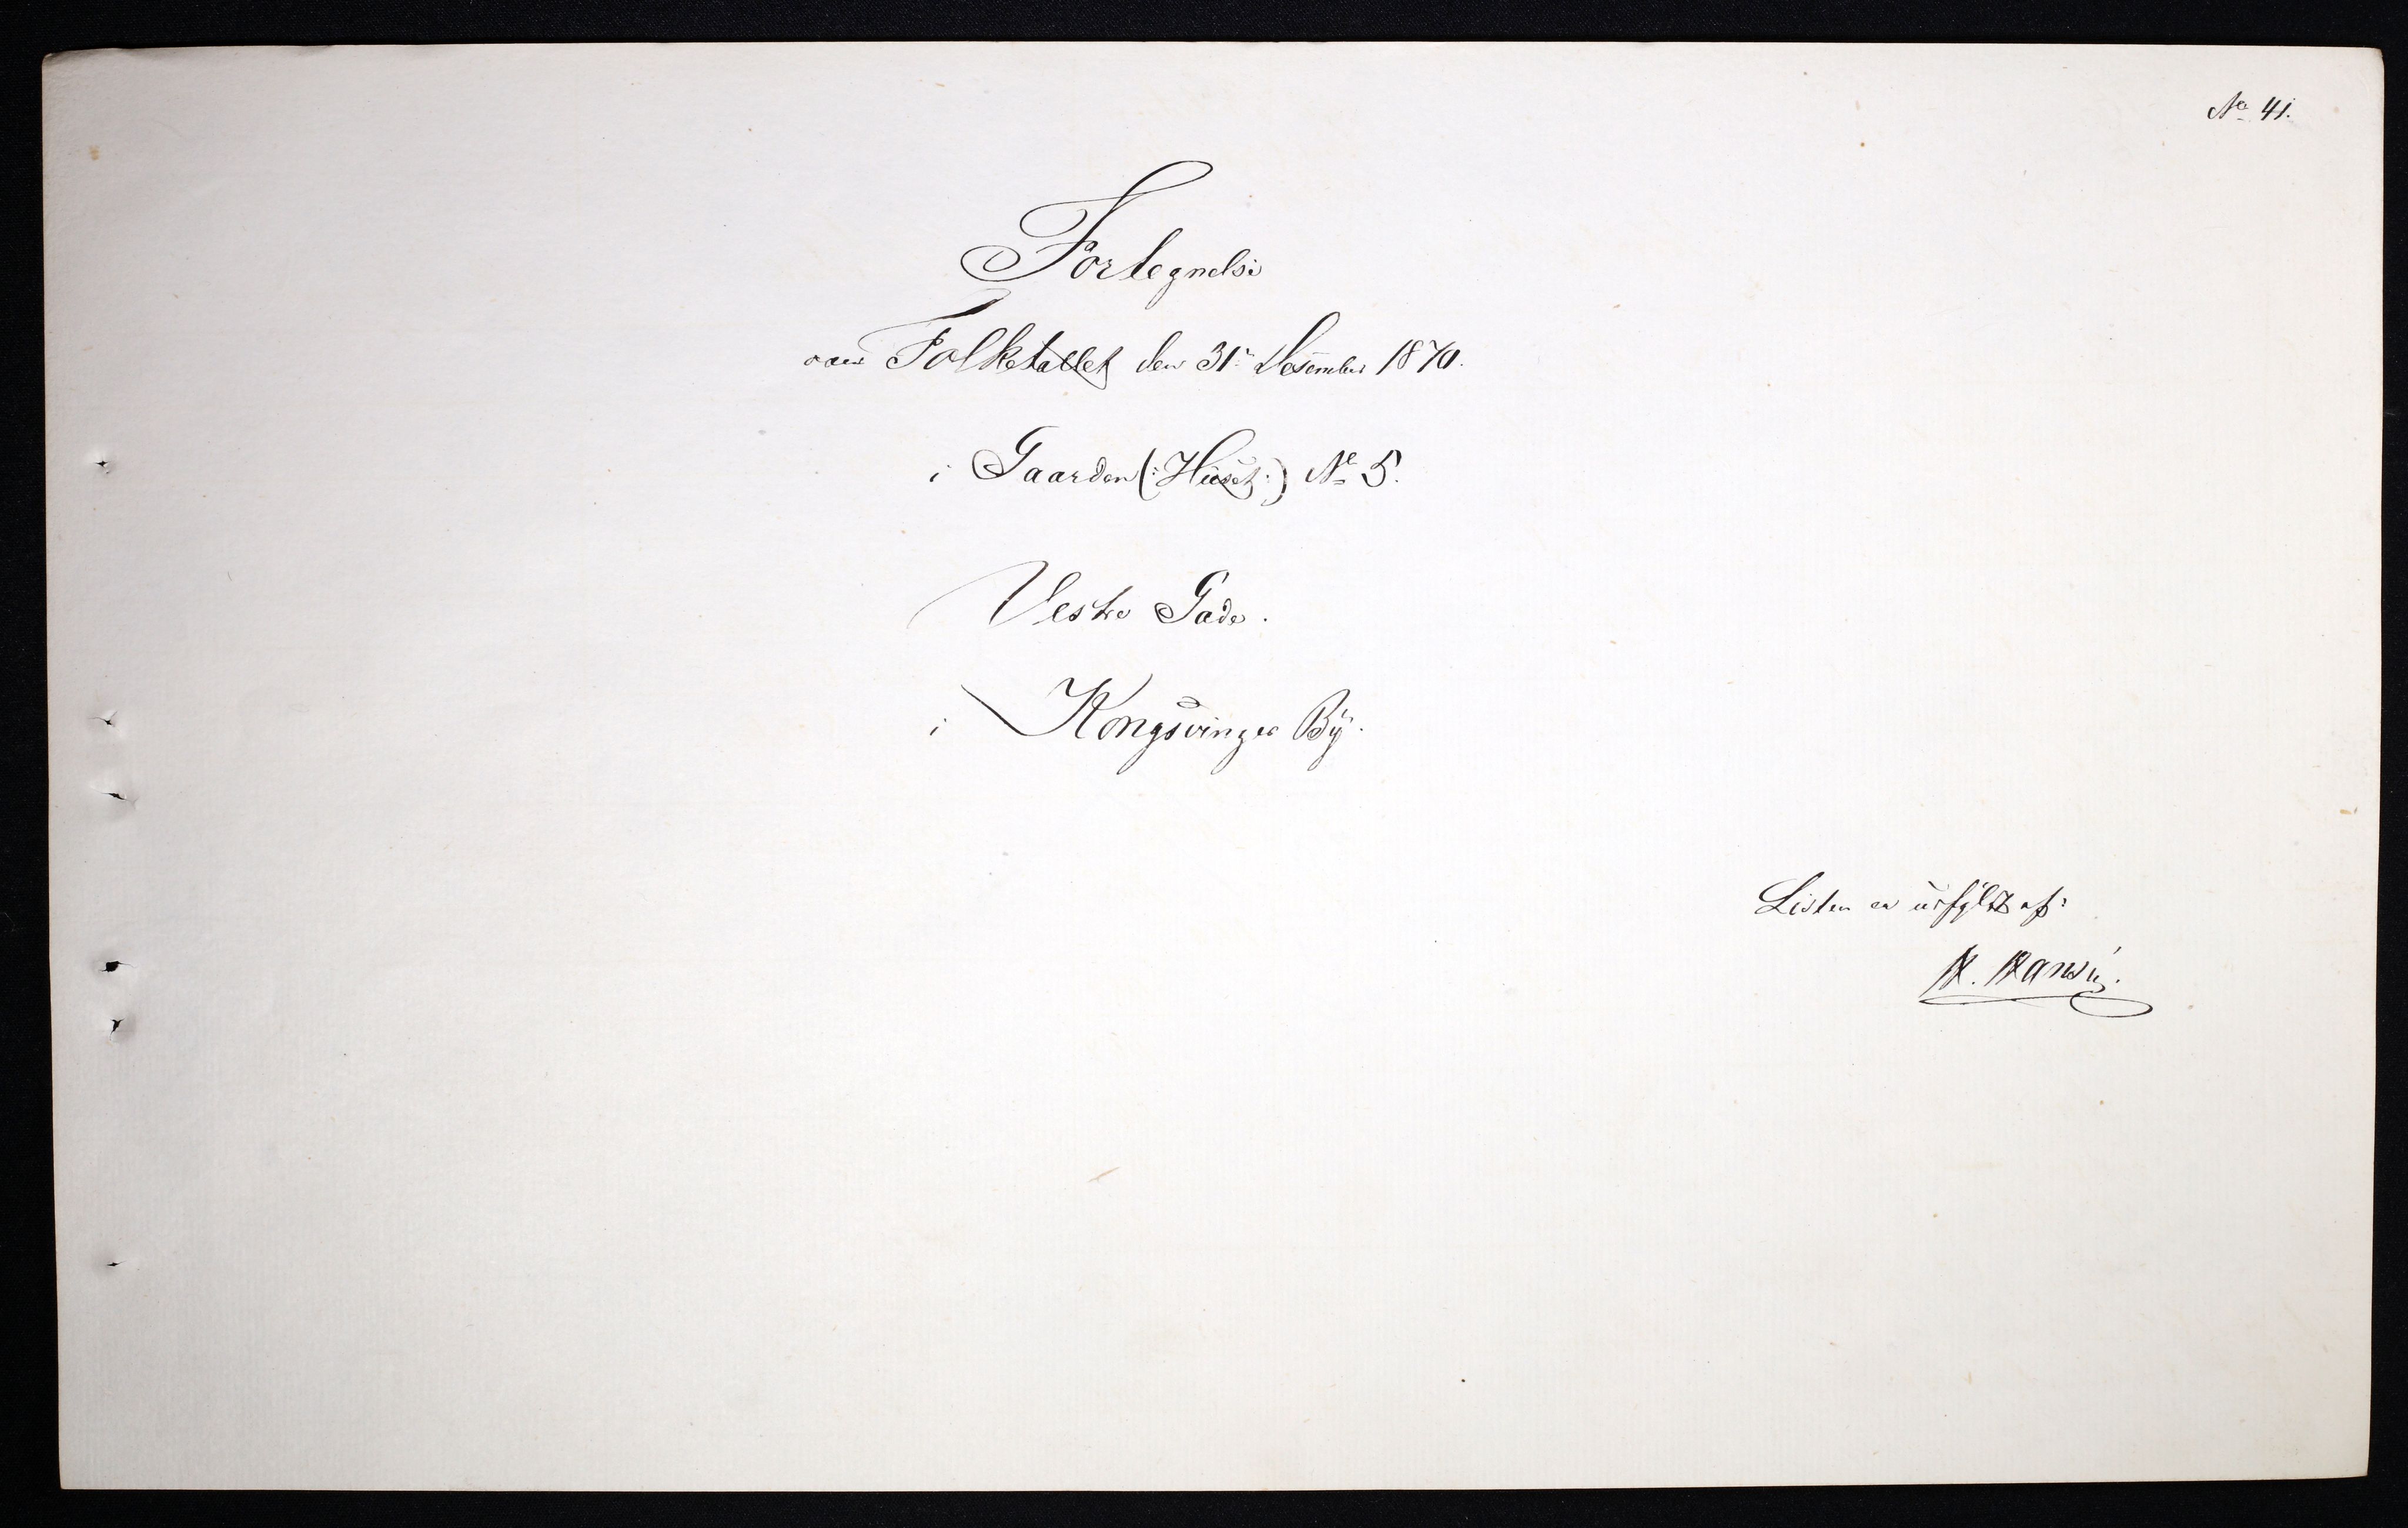 No 41.
Fortegnelse
over Folketallet den 31te Desember 1870.
i Gaarden (: Huset :) No 5.
Vestre Gade.
i Kongsvinger By.
Listen er udfyldt af: